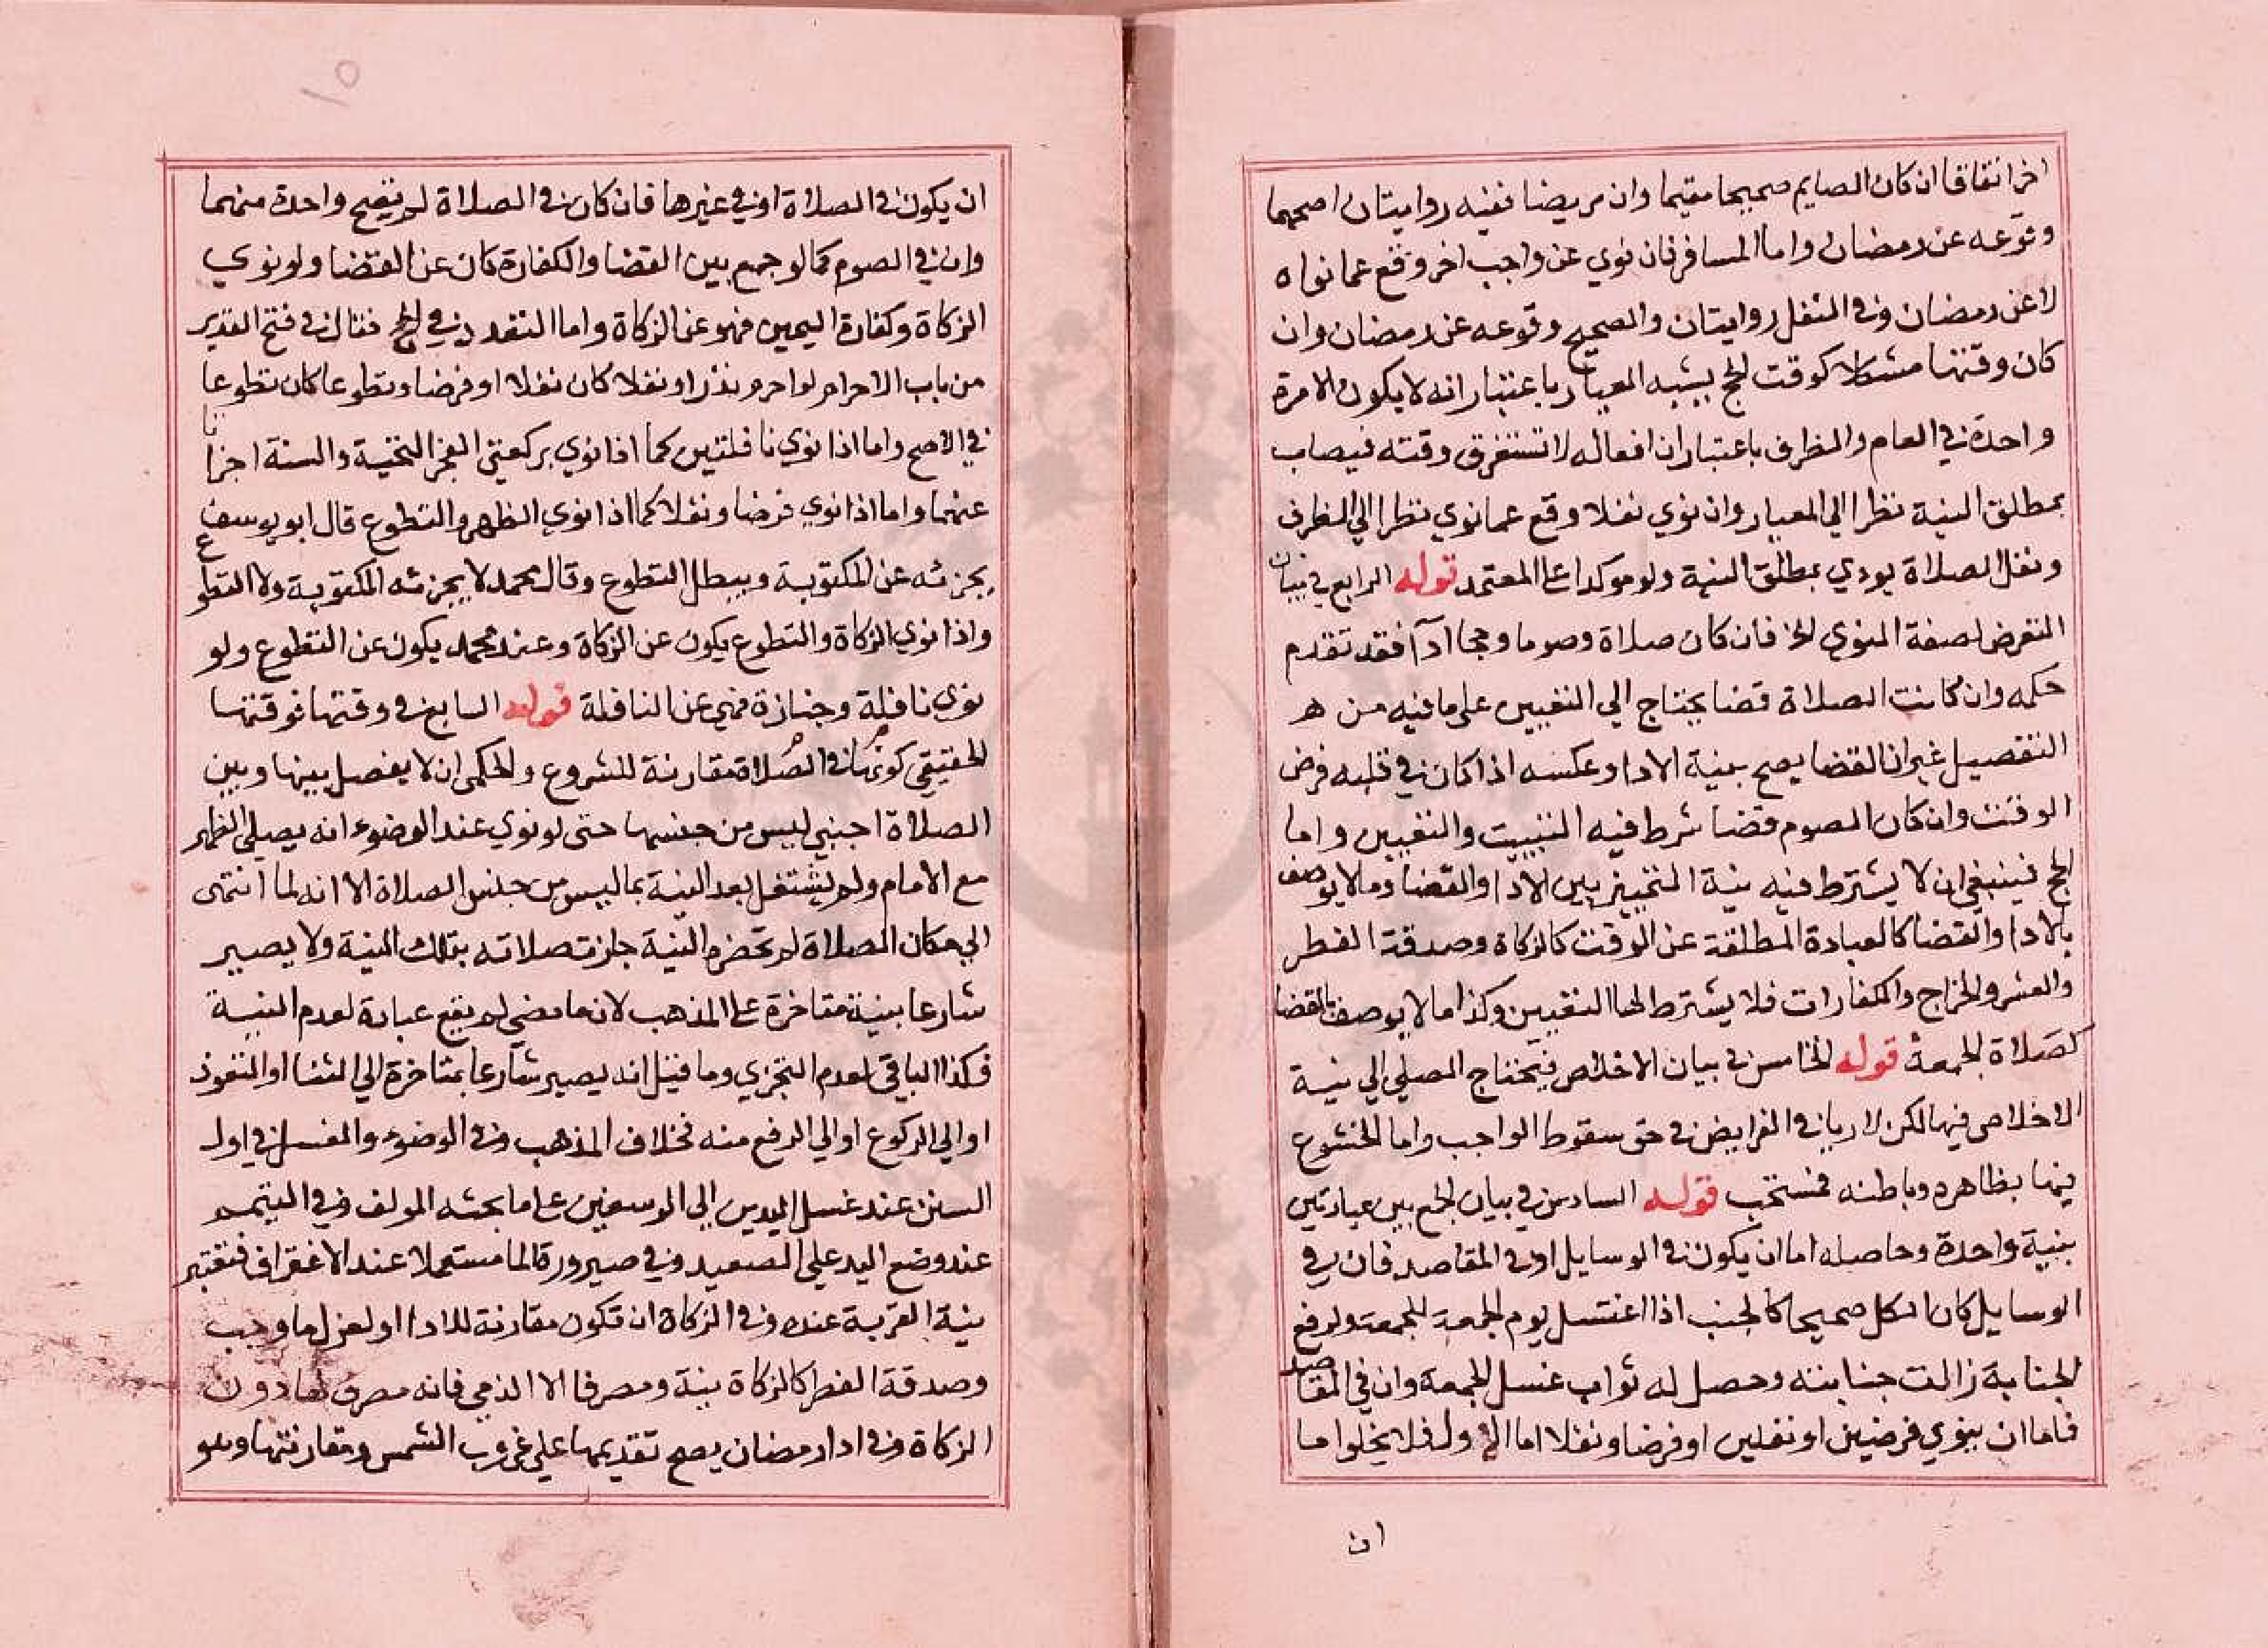 اخر اتفاقا ان كان الصايم صحيحا مقيما وان مريضا ففيه روايتان اصحهما
وقوعه عن رمضان واما المسافر فان نوي عن واجب اخر وقع عما نواه
لا عن رمضان وفي النفل روايتان والصحيح وقوعه عن رمضان وان
كان وقتها مشكلا كوقت الحج يشبه المعيار باعتبار انه لا يكون الا مرة
واحدة في العام والظرف باعتبار ان افعاله لا تستغرق وقته فيصاب
بمطلق النية نظرا الي المعيار وان نوي نفلا وقع عما نوي نظرا الي الظرف
ونفل الصلاة يودي بمطلق النية ولو موكدا علي المعتمد قوله الرابع في بيان
التعرض لصفة المنوي الخ فان كان صلاة وصوما وحجا ادآ فقد تقدم
حكمه وان كانت الصلاة قضا يحتاج الي التعيين علي ما فيه من هـ
التفصيل غير ان القضا يصح بنية الادا وعكسه اذا كان في قلبه فرض
الوقت وان كان الصوم قضا شرط فيه التبييت والتعيين واما
الحج فينبغي ان لا يشترط فيه نية التمييز بين الادا والقضا وما لا يوصف
بالادا والقضا كالعبادة المطلقة عن الوقت كالزكاة وصدقة الفطر
والعشر والخراج والكفارات فلا يشترط لها التعيين وكذا ما لا يوصف بالقضا
كصلاة الجمعة قوله الخامس في بيان الاخلاص فيحتاج المصلي الي نية
الاخلاص فيها لكن لا ريا في الفرايض في حق سقوط الواجب واما الخشوع
فيها بظاهره وباطنه فمستحب قوله السادس في بيان الجمع بين عبادتين
بنية واحدة وحاصله اما ان يكون في الوسايل او في المقاصد فان في
الوسايل كان الكل صحيحا كالجنب اذا اغتسل يوم الجمعة للجمعة ولرفع
الجنابة زالت جنابته وحصل له ثواب غسل الجمعة وان في المقاصد
فاما ان ينوي فرضين او نفلين او فرضا ونفلا اما الاول فلا يخلوا اما
ان
١٥
ان يكون في الصلاة او في غيرها فان كان في الصلاة لم تصح واحدة منهما
وان في الصوم كما لو جمع بين القضا والكفارة كان عن القضا ولو نوي
الزكاة وكفارة اليمين فهو عن الزكاة واما التعدد في الحج فقال في فتح القدير
من باب الاحرام لو احرم نذرا ونفلا كان نفلا او فرضا وتطوعا كان تطوعا
في الاصح واما اذا نوي نافلتين كما اذا نوي بركعتي الفجر التحية والسنة اجزاتا
عنهما واما اذا نوي فرضا ونفلا كما اذا نوي الظهر والتطوع قال ابو يوسف
يجزئه عن المكتوبة ويبطل التطوع وقال محمد لا يجزئه المكتوبة ولا التطوع
واذا نوي الزكاة والتطوع يكون عن الزكاة وعند محمد يكون عن التطوع ولو
نوي نافلة وجنازة فهي عن النافلة قوله السابع في وقتها فوقتها
الحقيقي كونها في الصلاة مقارنة للشروع والحكمي ان لا يفصل بينها وبين
الصلاة اجنبي ليس من جنسها حتى لو نوي عند الوضوء انه يصلي الظهر
مع الامام ولم يشتغل بعد النية بما ليس من جنس الصلاة الا انه لما انتهى
الي مكان الصلاة لم تحضره النية جازت صلاته بتلك النية ولا يصير
شارعا بنية متاخرة علي المذهب لان ما مضي لم يقع عبادة لعدم النية
فكذا الباقي لعدم التجزي وما قيل انه يصير شارعا بمتاخرة الي الثنا او التعوذ
او الي الركوع او الي الرفع منه فخلاف المذهب وفي الوضوء والغسل في اول
السنن عند غسل اليدين الي الرسغين علي ما بحثه المولف وفي التيمم
عند وضع اليد علي الصعيد وفي صيرورة الما مستعملا عند الاغتراف فتعتبر
نية القربة عنده وفي الزكاة ان تكون مقارنة للادا او لعزل ما وجب
وصدقة الفطر كالزكاة نية ومصرفا الا الذمي فانه مصرف لها دون
الزكاة وفي ادا رمضان يصح تقديمها علي غروب الشمس ومقارنتها وهو